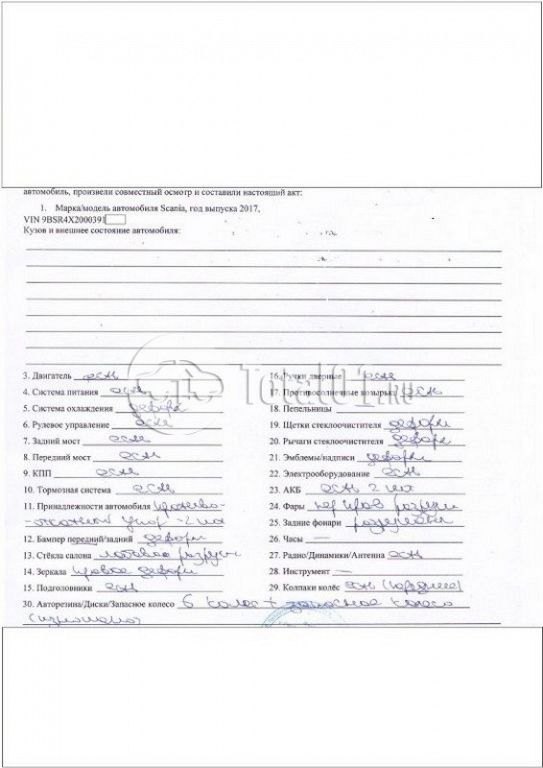 автомобиль, произвели совместный осмотр и составили настоящий акт:
1. Марка/модель автомобиля Scania, год выпуска 2017,
VIN 9BSR4X2000391
Кузов и внешнее состояние автомобиля:
3. Двигатель есть
4. Система питания есть
5. Система охлаждения деформ
6. Рулевое управление есть
7. Задний мост есть
8. Передний мост есть
9. КПП есть
10. Тормозная система есть
11. Принадлежности автомобиля
упор - 2 шт
12. Бампер передний/задний деформ
13. Стёкла салона лобовое разруш
14. Зеркала правое деформ
15. Подголовники есть
16. Ручки дверные есть
17. Противосолнечные козырьки есть
18. Пепельницы —
19. Щетки стеклоочистителя деформ
20. Рычаги стеклоочистителя деформ
21. Эмблемы/надписи деформ
22. Электрооборудование есть
23. АКБ есть 2 шт
24. Фары пер прав разруш
25. Задние фонари
26. Часы —
27. Радио/Динамики/Антенна есть
28. Инструмент —
29. Колпаки колёс есть
30. Авторезина/Диски/Запасное колесо 6 колес + запасное колесо
Total01.ru